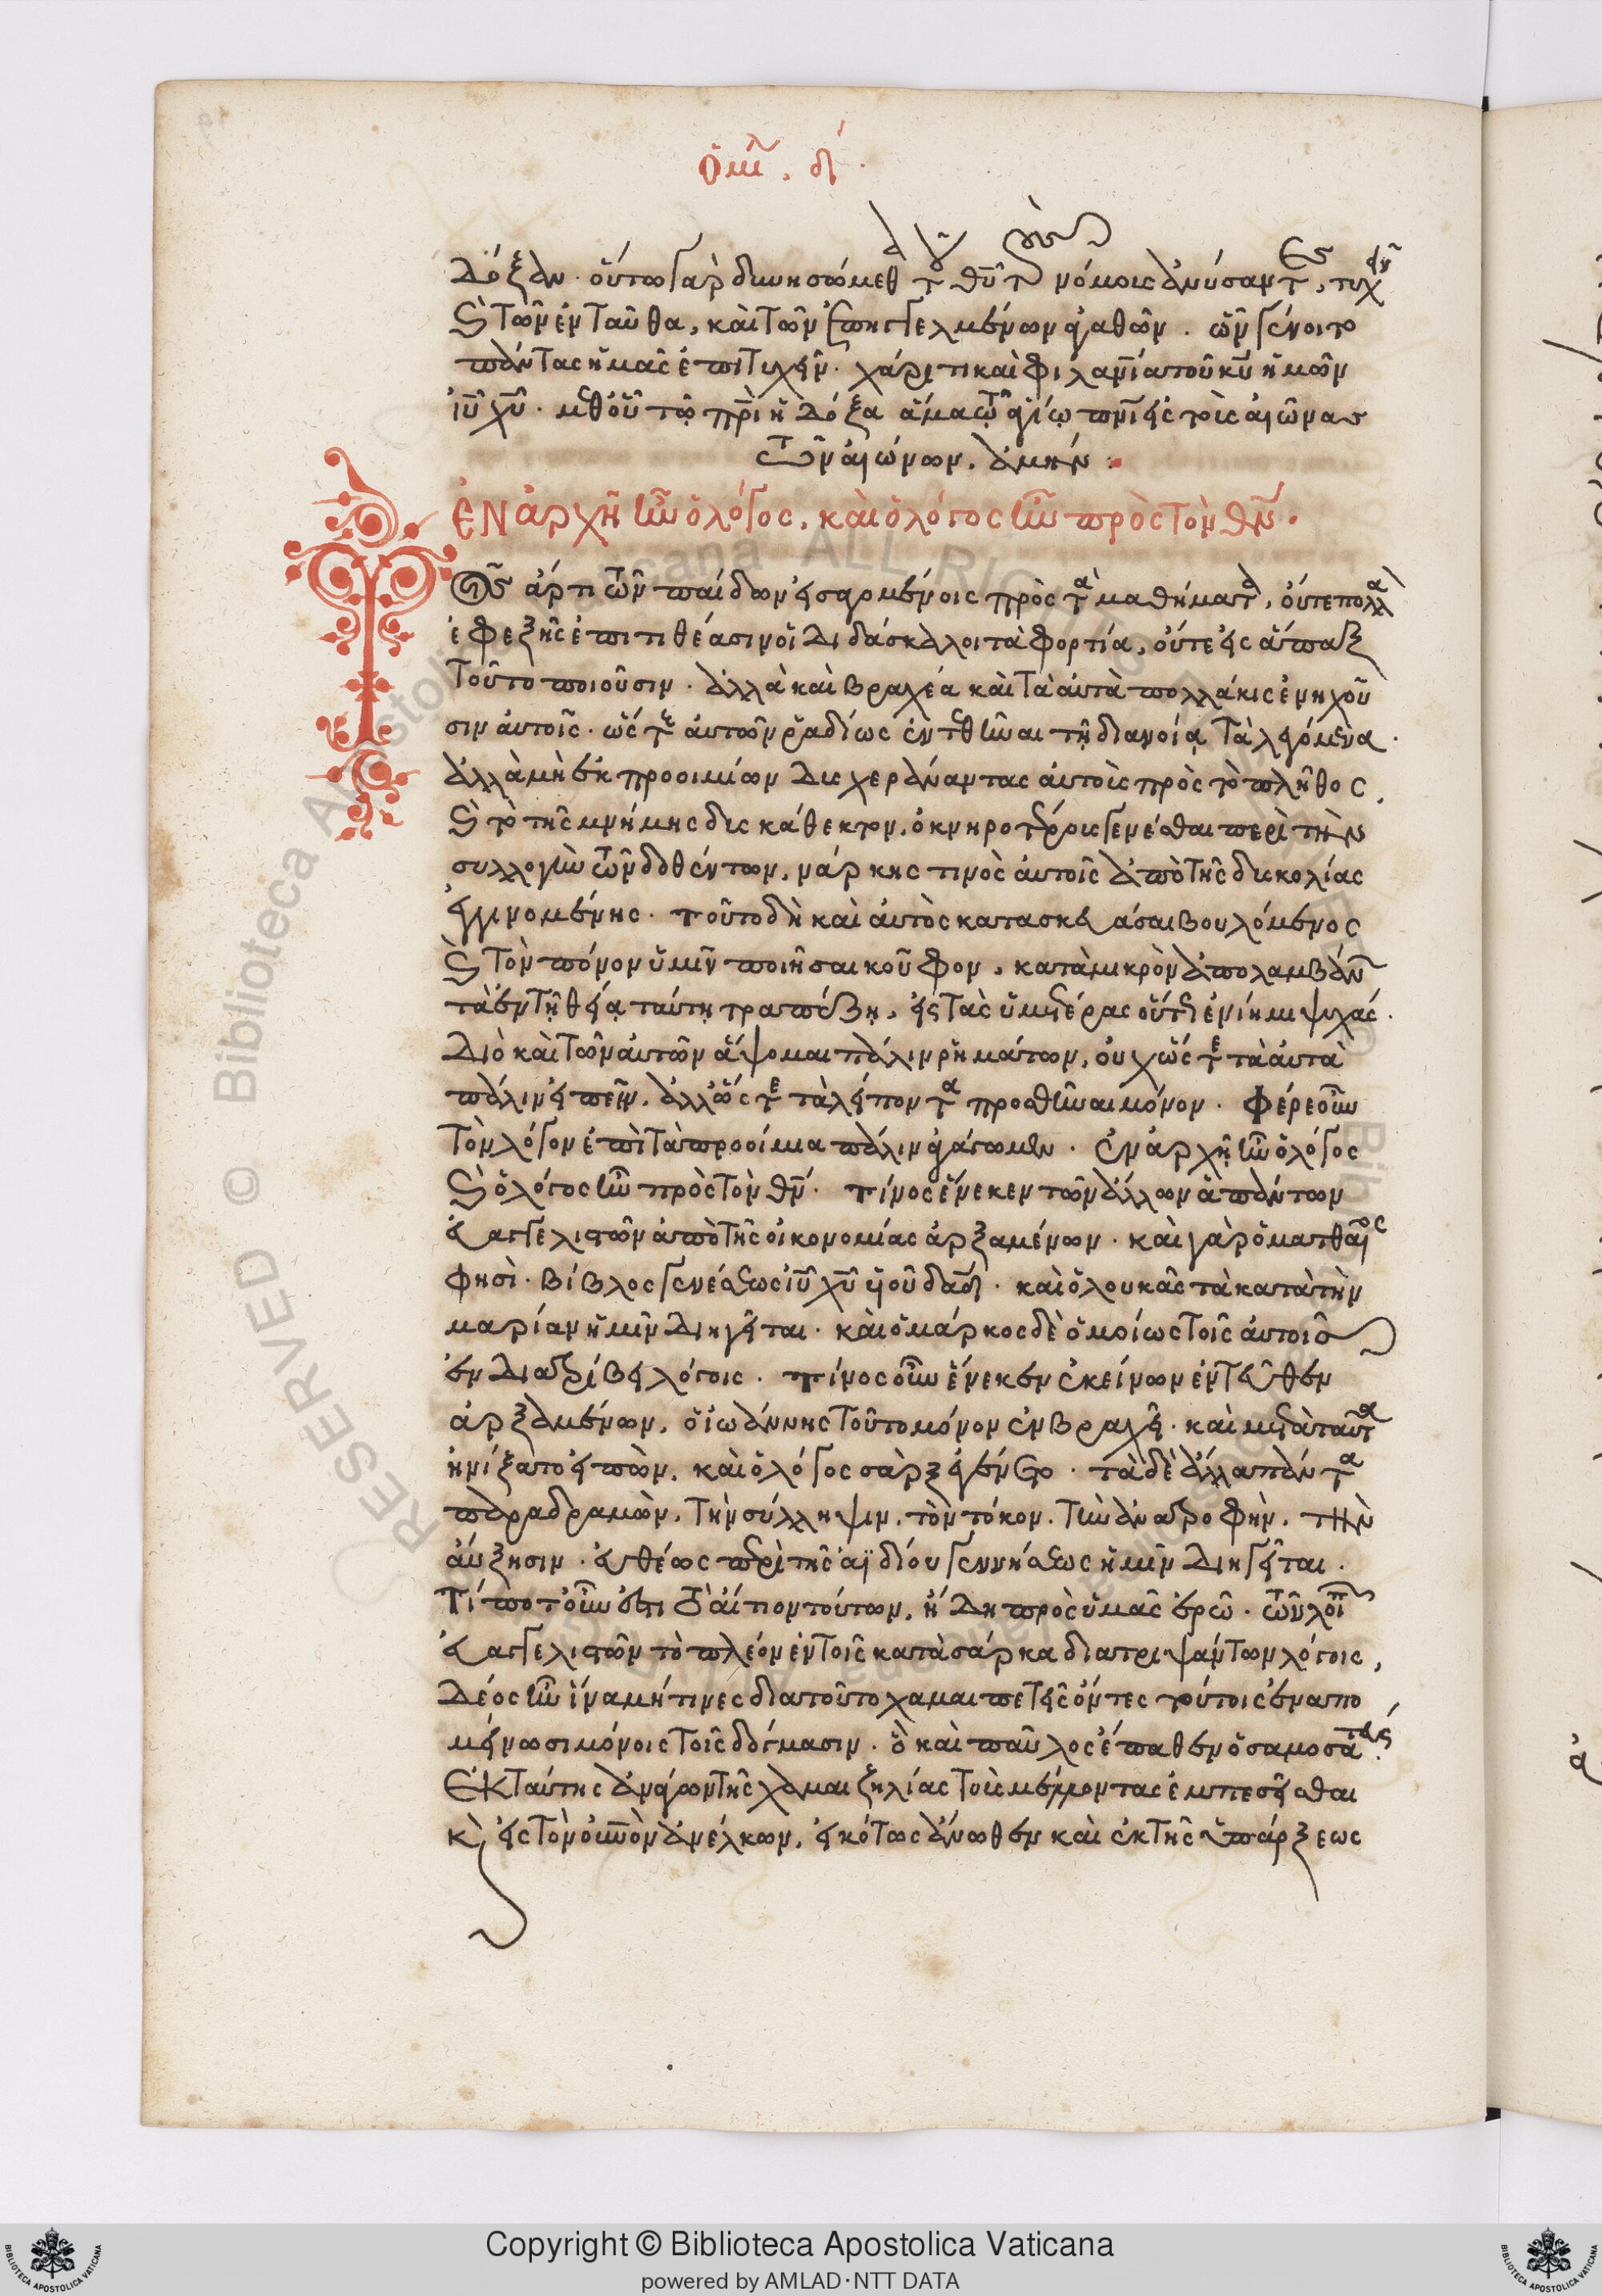 ὁμιλ. δ΄.
δόξαν· οὕτω γὰρ δυνησώμεθα τοῖς τοῦ θυ τοῖς νόμοις ἀνύσαντες, τυχεῖν
καὶ τῶν ἐνταῦθα, καὶ τῶν ἐπηγγελμένων ἀγαθῶν. ὧν γένοιτο
πάντας ἡμᾶς ἐπιτυχεῖν· χάριτι καὶ φιλανίᾳ τοῦ κυ ἡμῶν
ιυ χυ. μεθ' οὗ τῷ πρὶ ἡ δόξα ἅμα τῷ ἁγίῳ πνι εἰς τοὺς αἰῶνας
τῶν αἰώνων. ἀμήν.
ἐν ἀρχῇ ἦν ὁ λόγος, καὶ ὁ λόγος ἦν πρὸς τὸν θν.
Τοῖς ἄρτι τῶν παίδων εἰσαγομένοις πρὸς τὰ μαθήματα, οὔτε πολλὰ
ἐφεξῆς ἐπιτιθέασιν οἱ διδάσκαλοι τὰ φορτία, οὔτε εἰς ἅπαξ
τοῦτο ποιοῦσιν. ἀλλὰ καὶ βραχέα καὶ τὰ αὐτὰ πολλάκις ἐνηχοῦ
σιν αὐτοῖς. ὥστε αὐτῶν ῥαδίως ἐντεθῆναι τῇ διανοίᾳ τὰ λεγόμενα.
ἀλλὰ μὴ ἐκ προοιμίων δυσχεράναντας αὐτοὺς πρὸς τὸ πλῆθος,
καὶ τὸ τῆς μνήμης δυσκάθεκτον, ὀκνηροτέρους γενέσθαι περὶ τὴν
συλλογὴν τῶν δοθέντων, νάρκης τινὸς αὐτοῖς ἀπὸ τῆς δυσκολίας
ἐγγινομένης. τοῦτο δὴ καὶ αὐτὸς κατασκευάσαι βουλόμενος
καὶ τὸν πόνον ὑμῖν ποιῆσαι κοῦφον, κατὰ μικρὸν ἀπολαμβάνων
τὰ ἐν τῇ θείᾳ ταύτῃ τραπέζῃ, εἰς τὰς ὑμετέρας οὕτως ἐνίημι ψυχάς.
διὸ καὶ τῶν αὐτῶν ἅψομαι πάλιν ῥημάτων, οὐχ ὥστε τὰ αὐτὰ
πάλιν εἰπεῖν, ἀλλ' ὥστε τὰ λείποντα προσθῆναι μόνον. Φέρε οὖν
τὸν λόγον ἐπὶ τὰ προοίμια πάλιν ἀγάγωμεν. ἐν ἀρχῇ ἦν ὁ λόγος
καὶ ὁ λόγος ἦν πρὸς τὸν θν. τίνος ἕνεκεν τῶν ἄλλων ἁπάντων
εὐαγγελιστῶν ἀπὸ τῆς οἰκονομίας ἀρξαμένων. καὶ γὰρ ὁ ματθαῖος
φησὶ. βίβλος γενέσεως ιυ χυ υἱοῦ δαδ. καὶ ὁ λουκᾶς τὰ κατὰ τὴν
μαρίαν ἡμῖν διηγεῖται. καὶ ὁ μάρκος δὲ ὁμοίως τοῖς αὐτοῖς
ἐνδιατρίβει λόγοις. τίνος οὖν ἕνεκεν ἐκείνων ἐντεῦθεν
ἀρξαμένων, ὁ ἰωάννης τοῦτο μόνον ἐν βραχεῖ. καὶ μετὰ ταῦτα
ἠνίξατο εἰπὼν, καὶ ὁ λόγος σὰρξ ἐγένετο. τὰ δὲ ἄλλα πάντα
παραδραμὼν, τὴν σύλληψιν, τὸν τόκον, τὴν ἀνατροφὴν, τὴν
αὔξησιν. εὐθέως περὶ τῆς ἀϊδίου γεννήσεως ἡμῖν διηγεῖται.
Τί ποτ' οὖν ἐστι τὸ αἴτιον τούτων, ἤδη πρὸς ὑμᾶς ἐρῶ. τῶν λοιπῶν
εὐαγγελιστῶν τὸ πλέον ἐν τοῖς κατὰ σάρκα διατριψάντων λόγοις,
δέος ἦν ἵνα μή τινες διὰ τοῦτο χαμαιπετεῖς ὄντες τούτοις ἐναπο
μείνωσι μόνοις τοῖς δόγμασιν. ὃ καὶ παῦλος ἔπαθεν ὁ σαμοσατεύς.
Ἐκ ταύτης ἀνάγων τῆς χαμαιζηλίας τοὺς μέλλοντας ἐμπεσεῖσθαι
καὶ εἰς τὸν οὐνὸν ἀνέλκων, εἰκότως ἄνωθεν καὶ ἐκ τῆς ὑπάρξεως
RESERVED © Biblioteca Apostolica Vaticana ALL RIGHTS
Copyright © Biblioteca Apostolica Vaticana
powered by AMLAD·NTT DATA
BIBLIOTECA APOSTOLICA VATICANA
BIBLIOTECA APOSTOLICA VATICANA